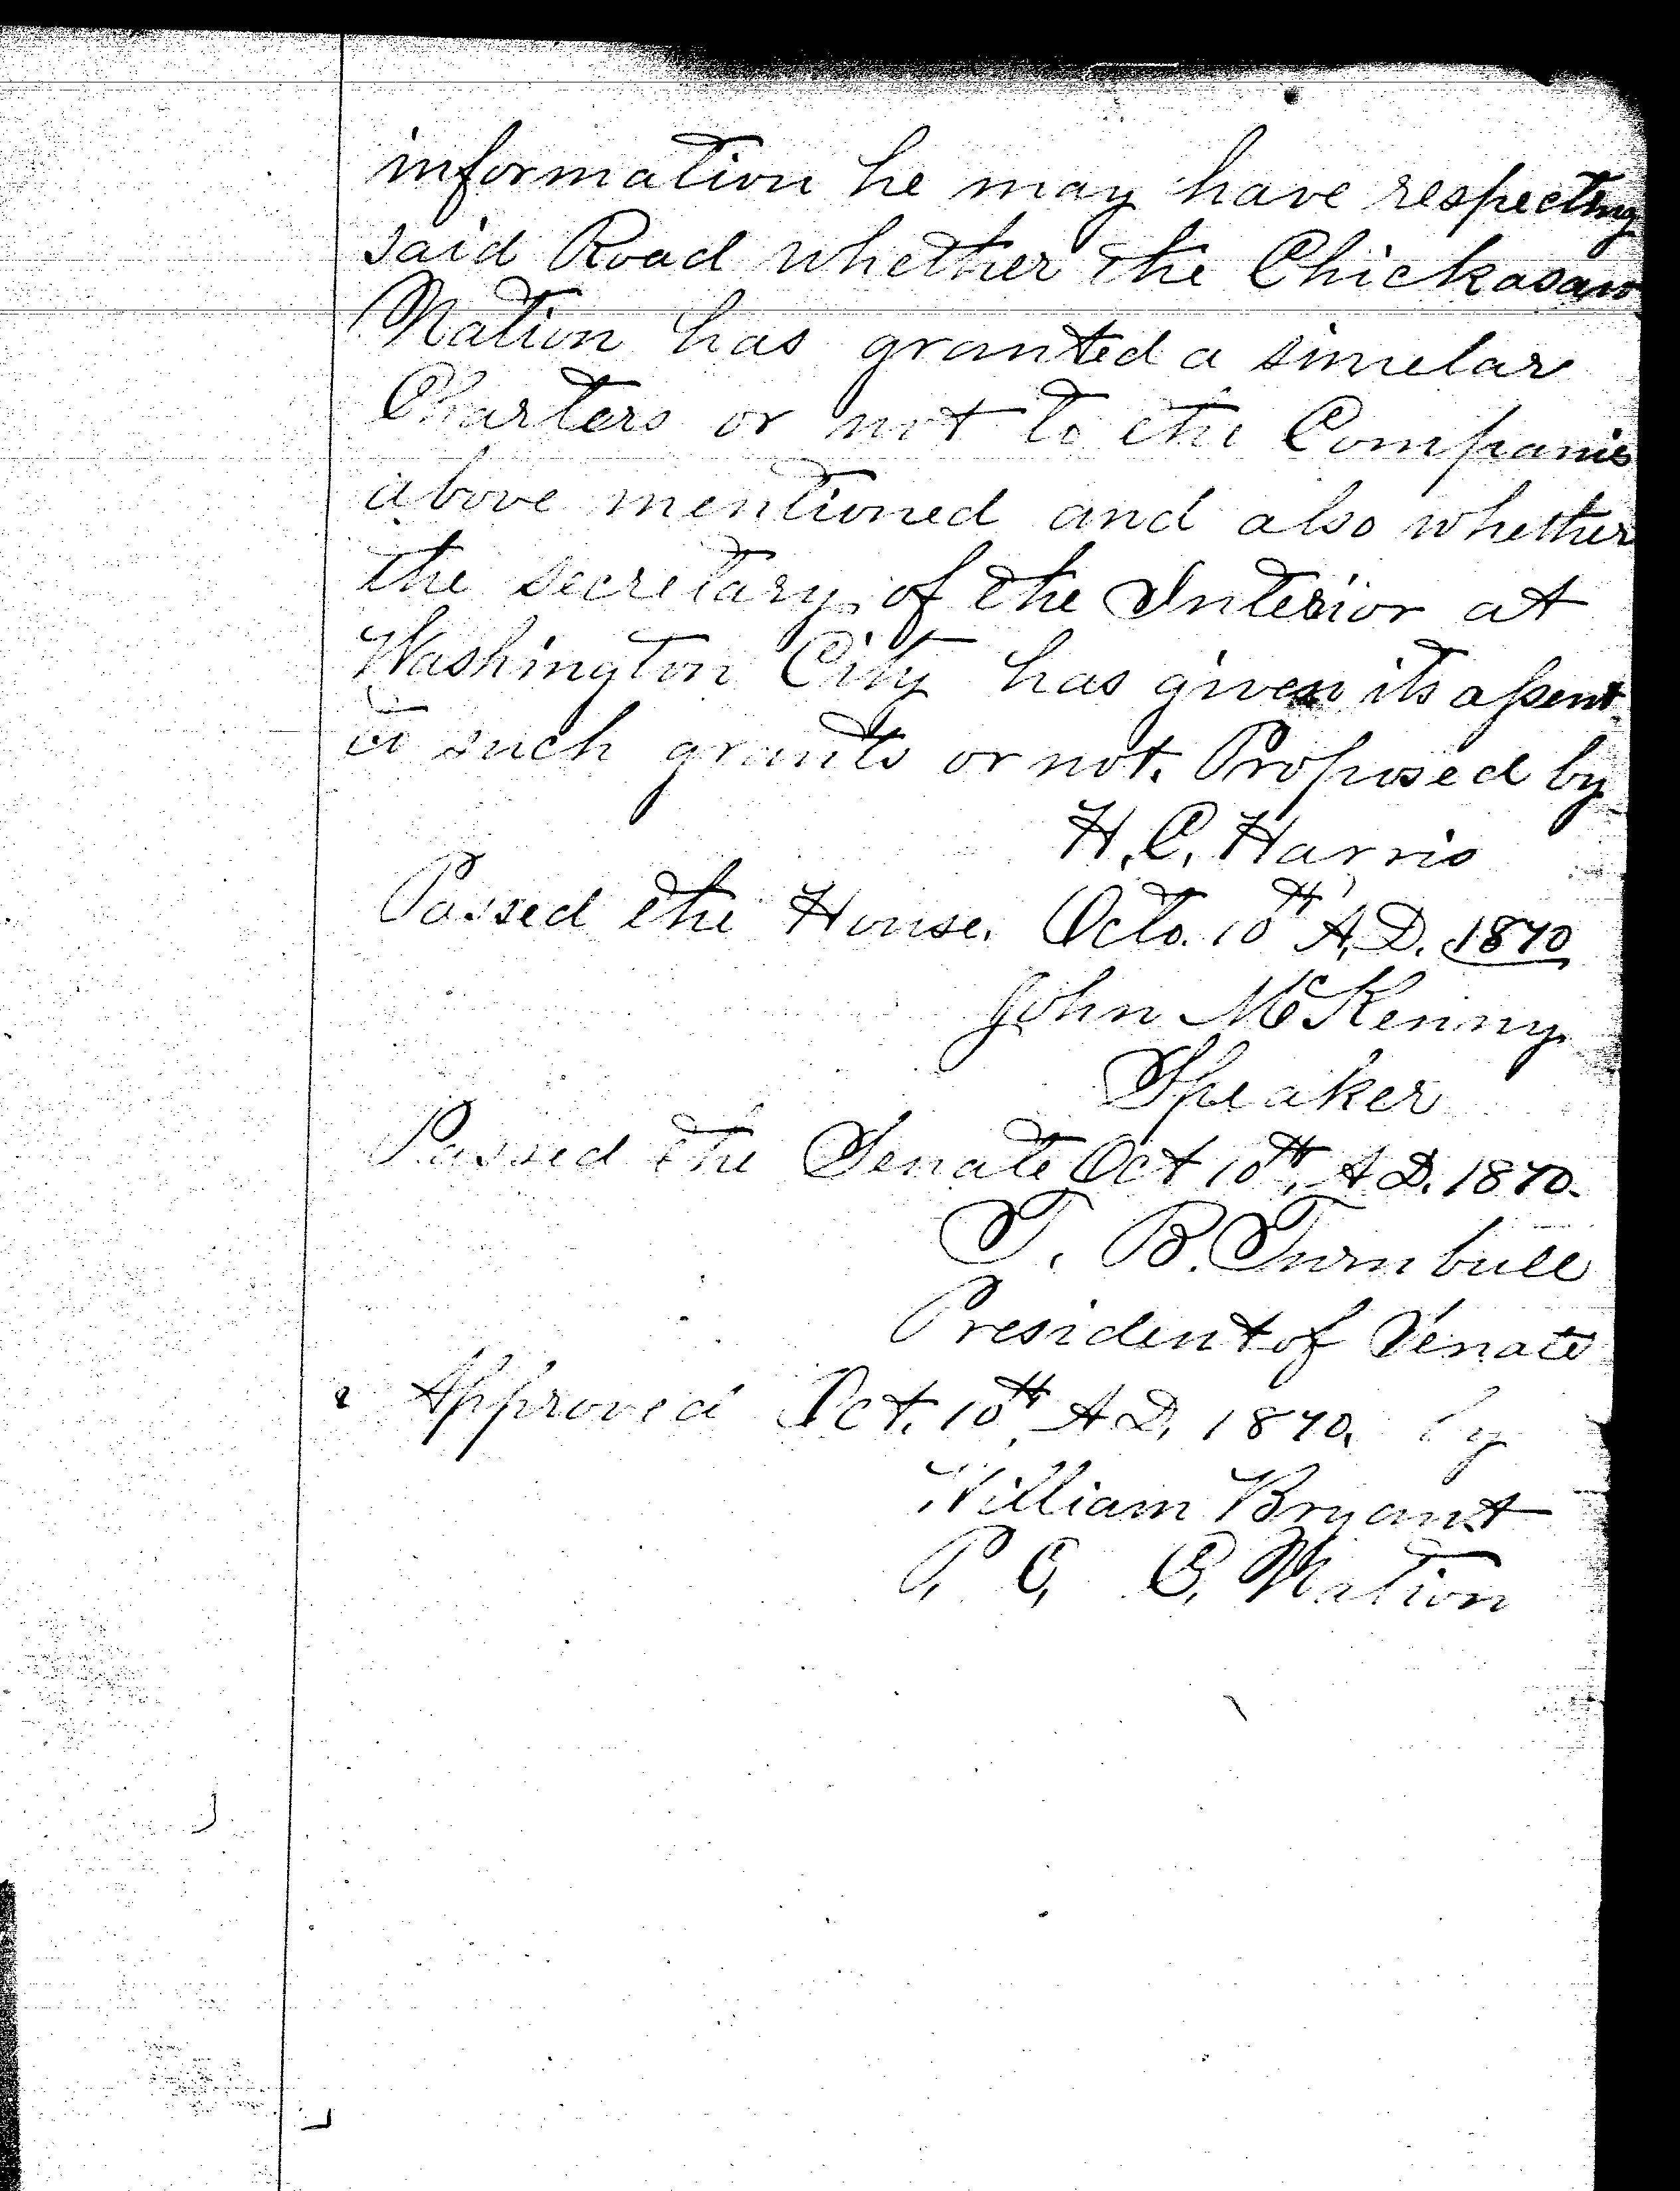 information he may have respecting
said Road whether the Chickasaw
Nation has granted a simelar
Charters or not to the Companies
above mentioned and also whether
the secretary of the Interior at
Washington City has given its assent
to such grants or not. Proposed by
H. C. Harris
Passed the House. Octo. 10th A.D. 1870
John McKenny
Speaker
Passed the Senate Oct 10th, A D. 1870.
T. B. Turnbull
President of Senate
Approved Oct. 10th, A D, 1870, by
William Bryant
P. C, C, Nation